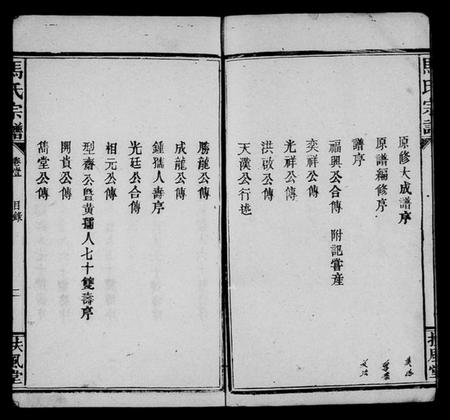 馬氏宗譜
扶風堂
原修大成譜序
原譜編修序
譜序
福興公合傳 附記嘗産
奕祥公傳
光祥公傳
洪啟公傳
天漢公行述
勝龍公傳
成龍公傳
鍾孺人壽序
光廷公合傳
相元公傳
型齋公暨黃孺人七十雙壽序
開貴公傳
喬堂公傳
馬氏宗譜
卷壹
目錄
一
扶風堂